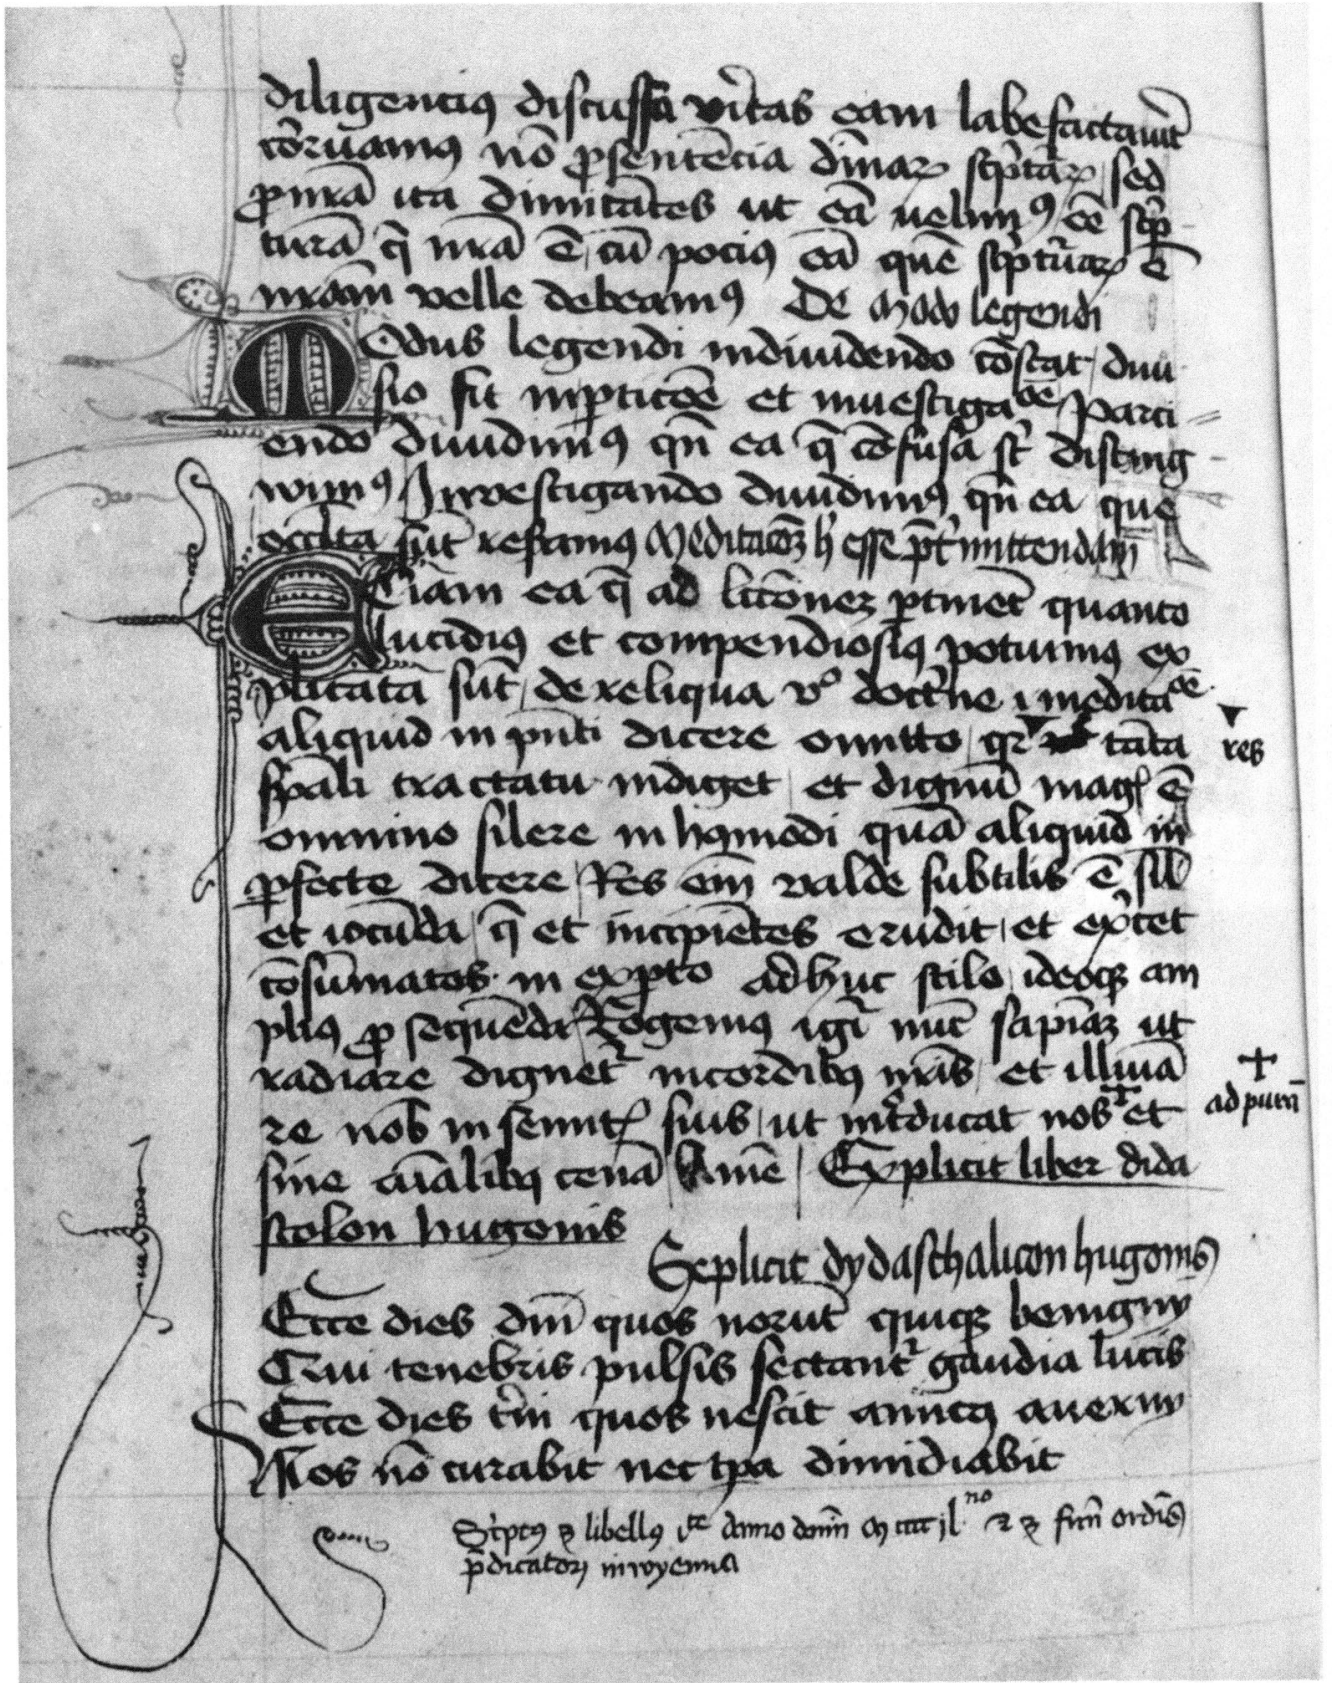 diligencius discussa v̾itas eam labefactauit̾
cōruamus nō ꝓ sentēcia diuīaꝝ sc̾ptaꝝ / sed
ꝓ nr̄ā ita dimicātes ut eā uelimꝰ ēē sc̾p
turā q̄ nr̄ā ē / cū pocius eā quē sc̾pt̾uaꝝ ē
nr̄am velle debeamꝰ De modo legendi
Modus legendi in diuidendo cōstat / diui
sio fit in ꝑticōē et inuestigaōē / Parci
endo diuidimꝰ qn̄ ea q̄ cōfusa st̄ disting
wimꝰ / Investigando diuidimꝰ qn̄ ea que
occl̾ta sūt reseramus Meditacōꝫ h̾ esse p̄t̾mittendam
Eciam ea q̄ ad lccōneꝫ ꝑtinēt quanto
lucidius et compendiosius potuimus ex
plicata sūt / de reliqua v̊ doct̾ne ı meditaōē
aliquid in pn̄ti dicere omitto / qr tāta res
sp̄āli tractatu indiget / et dignū magꝭ ē
omnino silere in hꝰmodi quā aliquid in
ꝑfecte dicere / Res em̄ valde subtilis ē sil̾
et iocūda / q̄ et incipiētes erudit / et ex̾cet
cōsūmatos · in exꝑto adhuc stilo / ideoqꝫ am
plius ꝓ sequēda / Rogemus igi̾ nūc sapiāꝫ ut
radiare dignet̾ in cordibꝰ nr̄is / et illīuā
re nob̾ in semitꝭ suis / ut int̾ducat nos et ad purā
sine aīalibꝰ cenā / Amē / Explicit liber dida
scolon hugonis
Explicit dydaschalicon hugonis
Ecce dies dn̄i quos norūt quiqꝫ benigny
Qui tenebris pulsis sectant̾ gaudia lucis
Ecce dies t̾ni quos nescit amicꝰ auerny
Mos nō curabit nec tꝑa dimidiabit
Sc̾ptꝰ ē libellꝰ iste Anno domī M ccc jlno ꝛ ē frm̄ ordīs
p̄dicatoꝝ in wyenna